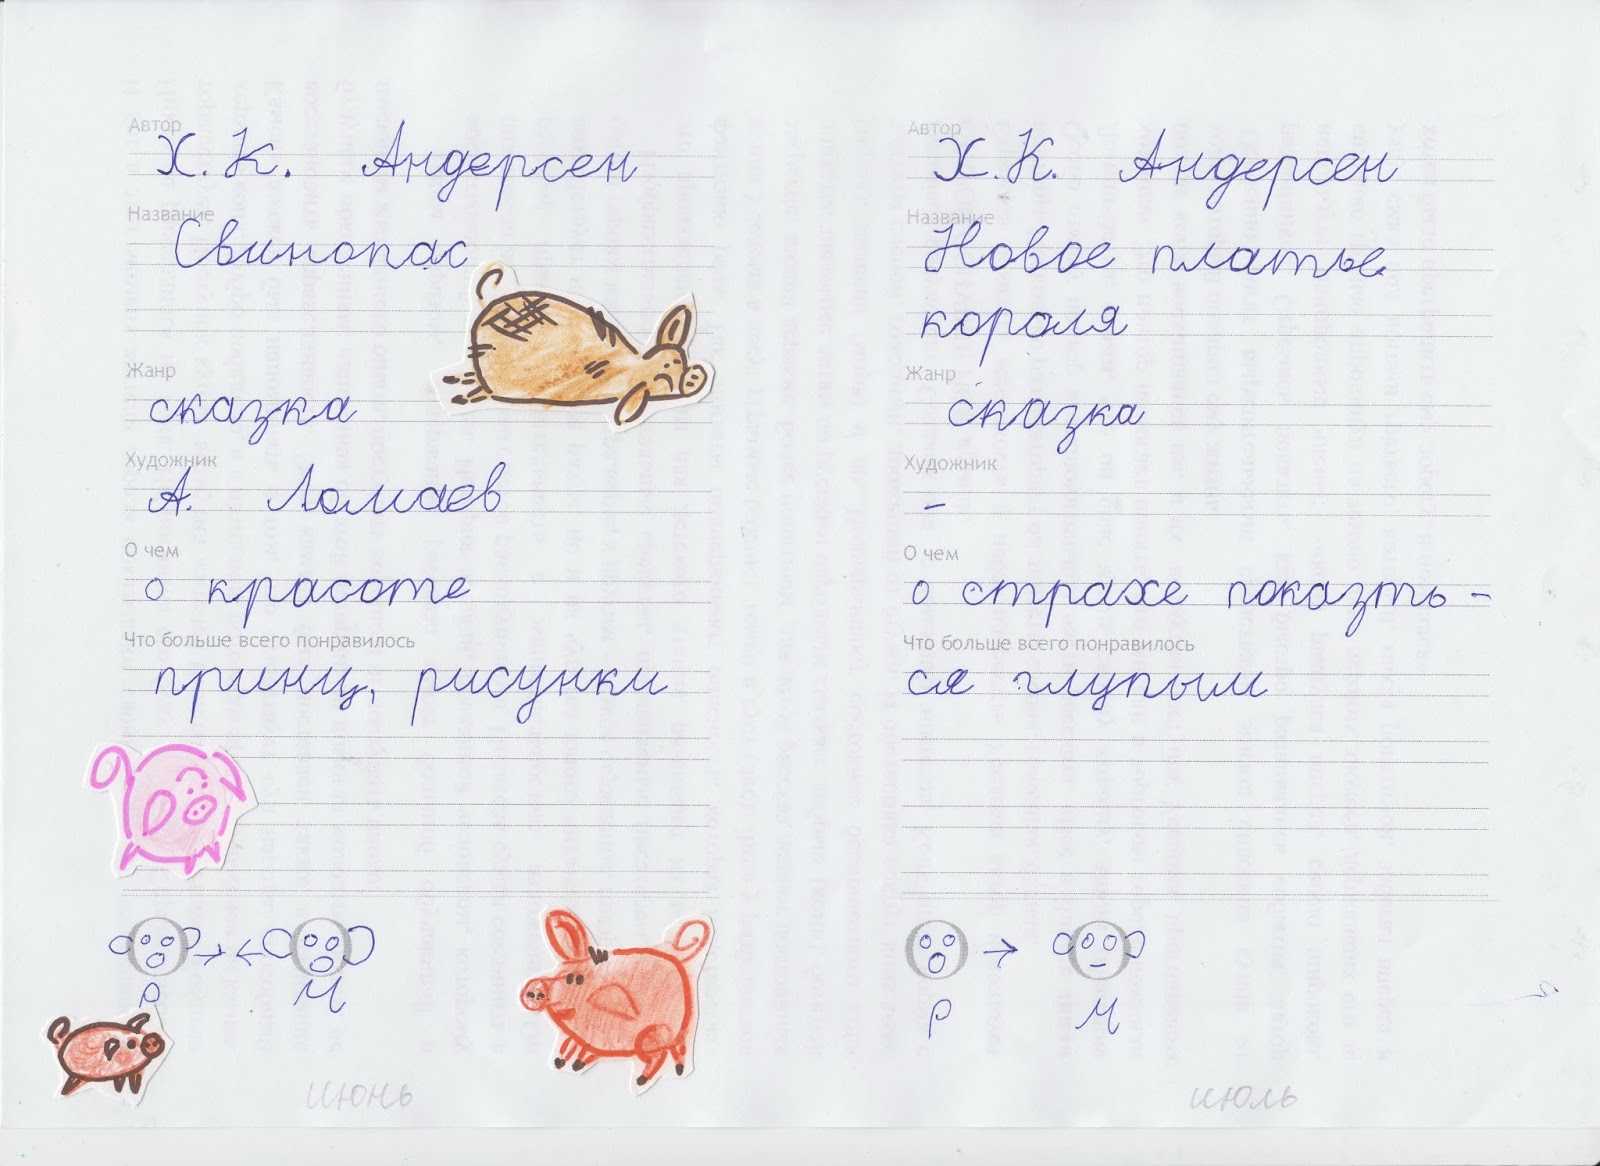 Автор
Х. К. Андерсен
Название
Свинопас
Жанр
сказка
Художник
А. Ломаев
О чем
о красоте
Что больше всего понравилось
принц, рисунки
Р → ← М
июнь
Автор
Х. К. Андерсен
Название
Новое платье
короля
Жанр
сказка
Художник
–
О чем
о страхе показть-
Что больше всего понравилось
ся глупым
→
Р М
июль